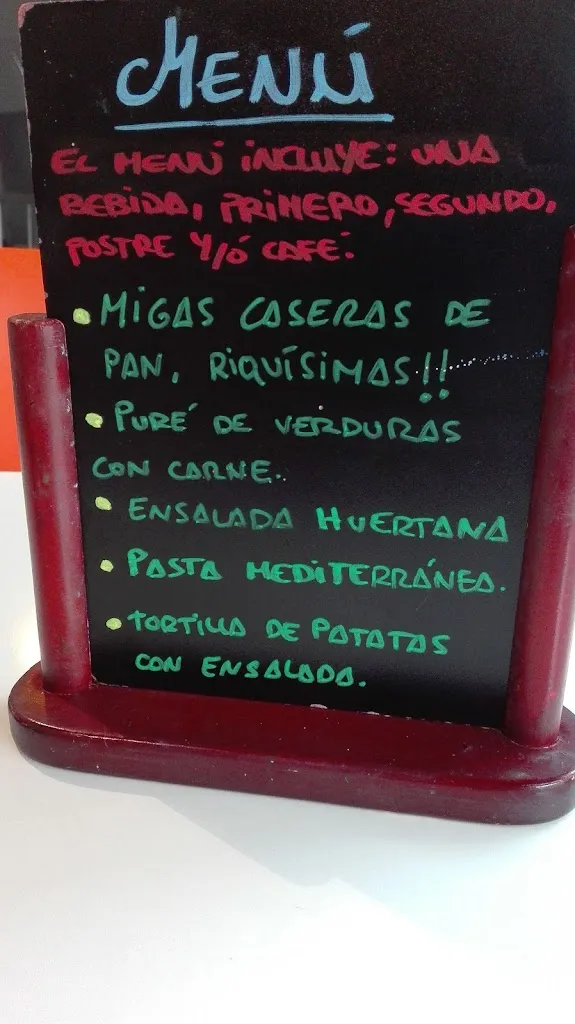 MENÚ
EL MENÚ INCLUYE: UNA
BEBIDA, PRIMERO, SEGUNDO,
POSTRE Y/Ó CAFÉ.
• MIGAS CASERAS DE
PAN, RIQUÍSIMAS!!
• PURÉ DE VERDURAS
CON CARNE..
• ENSALADA HUERTANA
• PASTA MEDITERRÁNEA.
• TORTILLA DE PATATAS
CON ENSALADA.